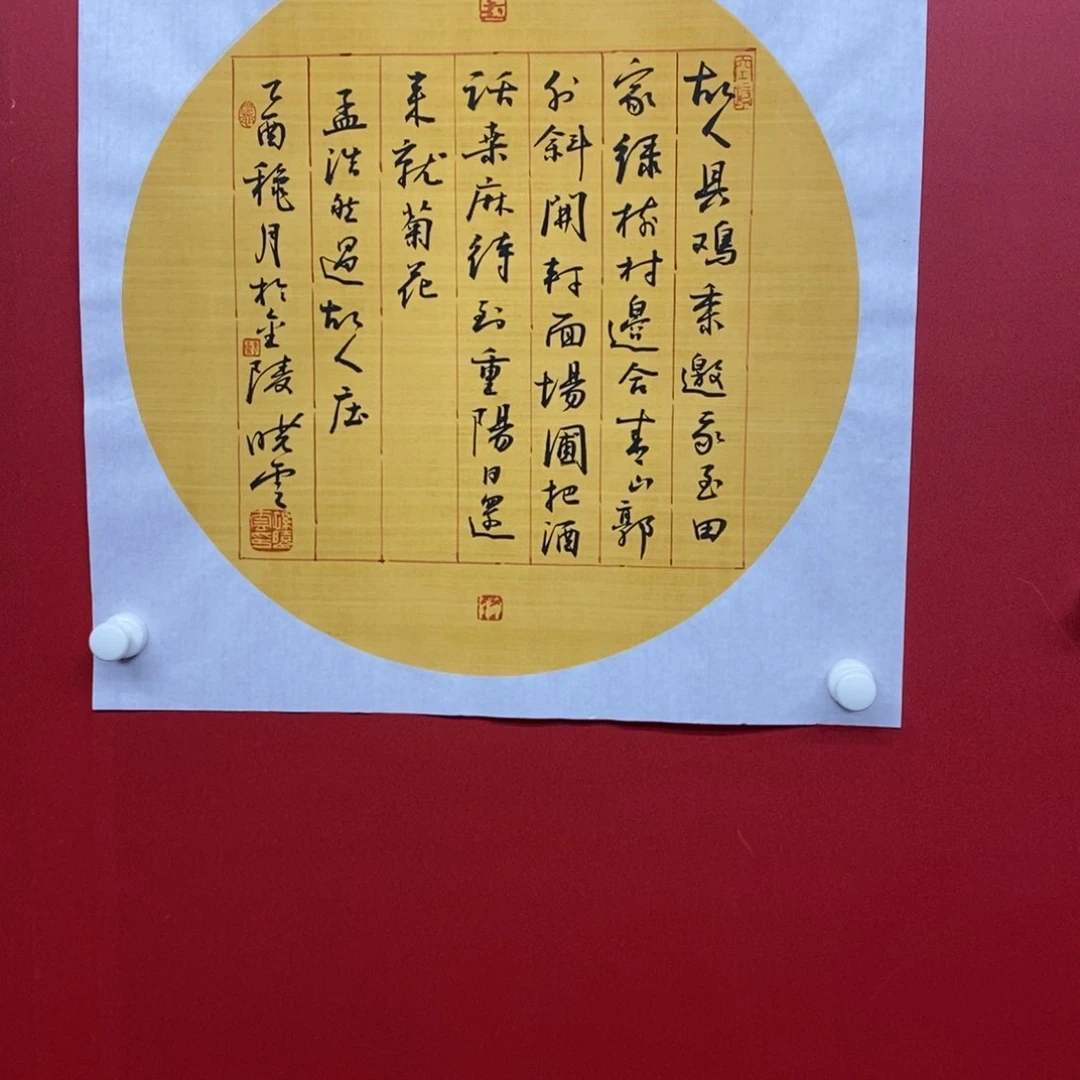 故人具鸡黍邀我至田
家绿树村邊合青山郭
外斜開軒面場圃把酒
話桑麻待到重陽日還
来就菊花
孟浩然過故人庄
乙酉穐月於金陵晓雲